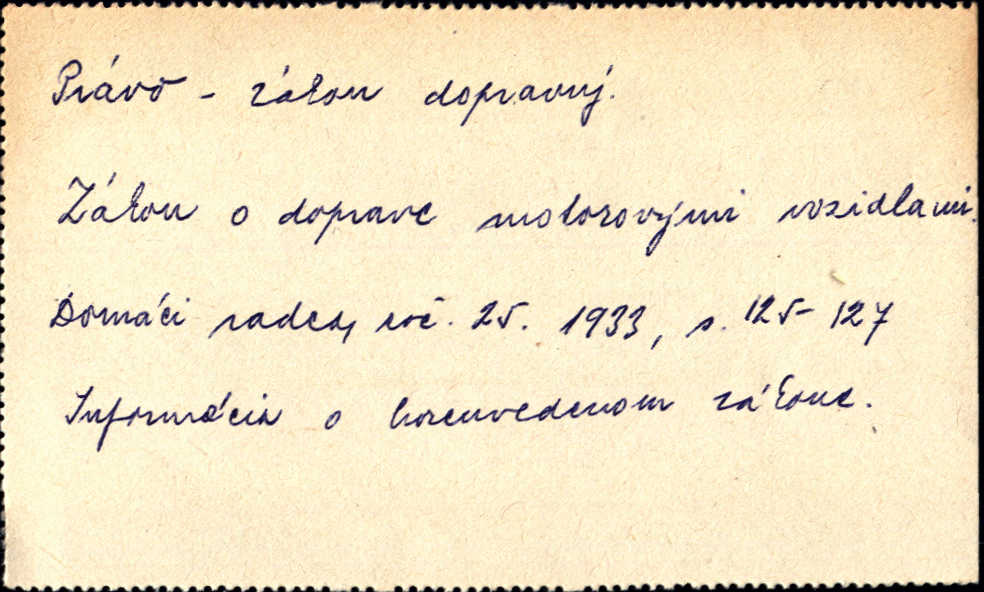 Právo - zákon dopravný.
Zákon o doprave motorovými vozidlami.
Domáci radca, roč. 25. 1933, s. 125-127
Informácia o horeuvedenom zákone.